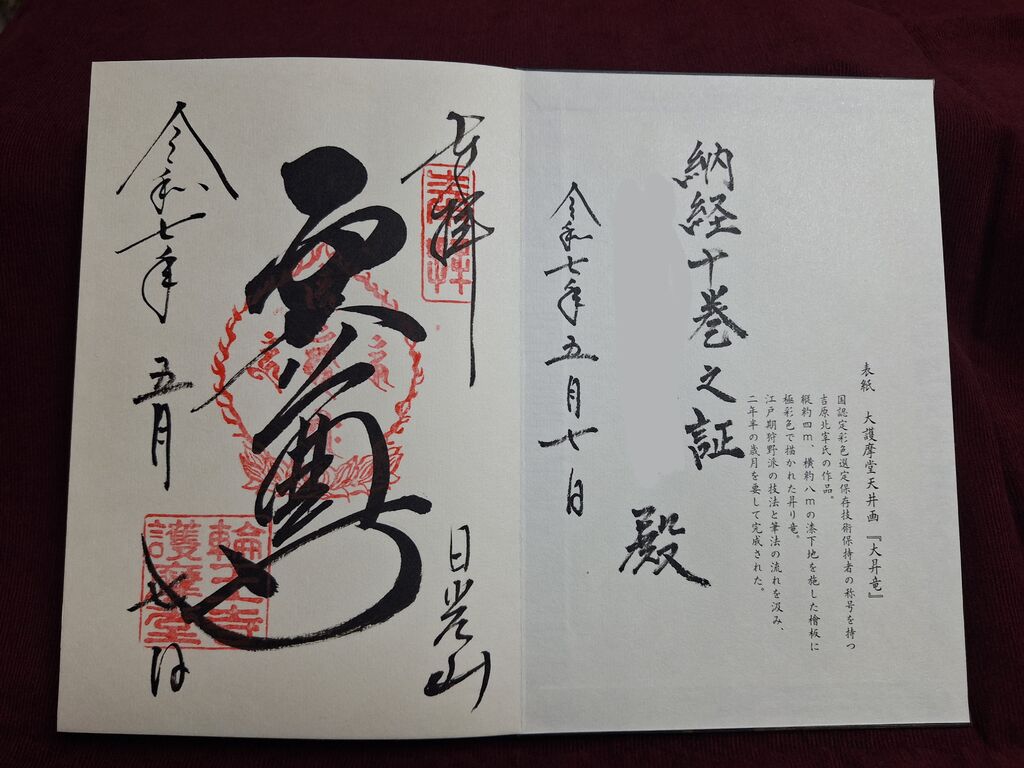 表紙　大護摩堂天井画『大昇竜』
国認定彩色選定保存技術保持者の称号を持つ
吉原北宰氏の作品。
縦約四m、横約八mの漆下地を施した檜板に
極彩色で描かれた昇り竜。
江戸期狩野派の技法と筆法の流れを汲み、
二年半の歳月を要して完成された。
納経十巻之証
殿
令和七年五月七日
奉拝
奉拝
日光山
輪王寺
護摩堂
令和七年五月七日